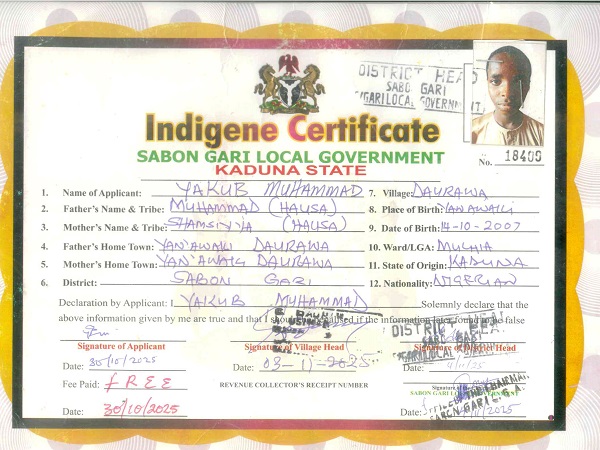 DISTRICT HEAD
SABO GARI
GARI LOCAL GOVERNMENT
Indigene Certificate
SABON GARI LOCAL GOVERNMENT
KADUNA STATE
No. 18409
1. Name of Applicant: YAKUB MUHAMMAD 7. Village: DAURAWA
2. Father's Name & Tribe: MUHAMMAD (HAUSA) 8. Place of Birth: YAN AWAKI
3. Mother's Name & Tribe: SHAMSIYYA (HAUSA) 9. Date of Birth: 14-10-2007
4. Father's Home Town: YAN'AWAKI DAURAWA 10. Ward/LGA: MUCHIA
5. Mother's Home Town: YAN'AWAKI DAURAWA 11. State of Origin: KADUNA
6. District: SABON GARI 12. Nationality: NIGERIAN
Declaration by Applicant: I YAKUB MUHAMMAD Solemnly declare that the
above information given by me are true and that I should be penalised if the information later found to be false
DISTRICT HEAD
SABO GARI
GARI LOCAL
Signature of Applicant Signature of Village Head Signature of District Head
Date: 30/10/2025 Date: 03-11-2025 Date: 4/11/25
Fee Paid: FREE REVENUE COLLECTOR'S RECEIPT NUMBER
SABON GARI LOCAL GOVERNMENT
OFFICE OF THE CHAIRMAN
SABON GARI L.G.A.
Date: 30/10/2025 Date: /2025